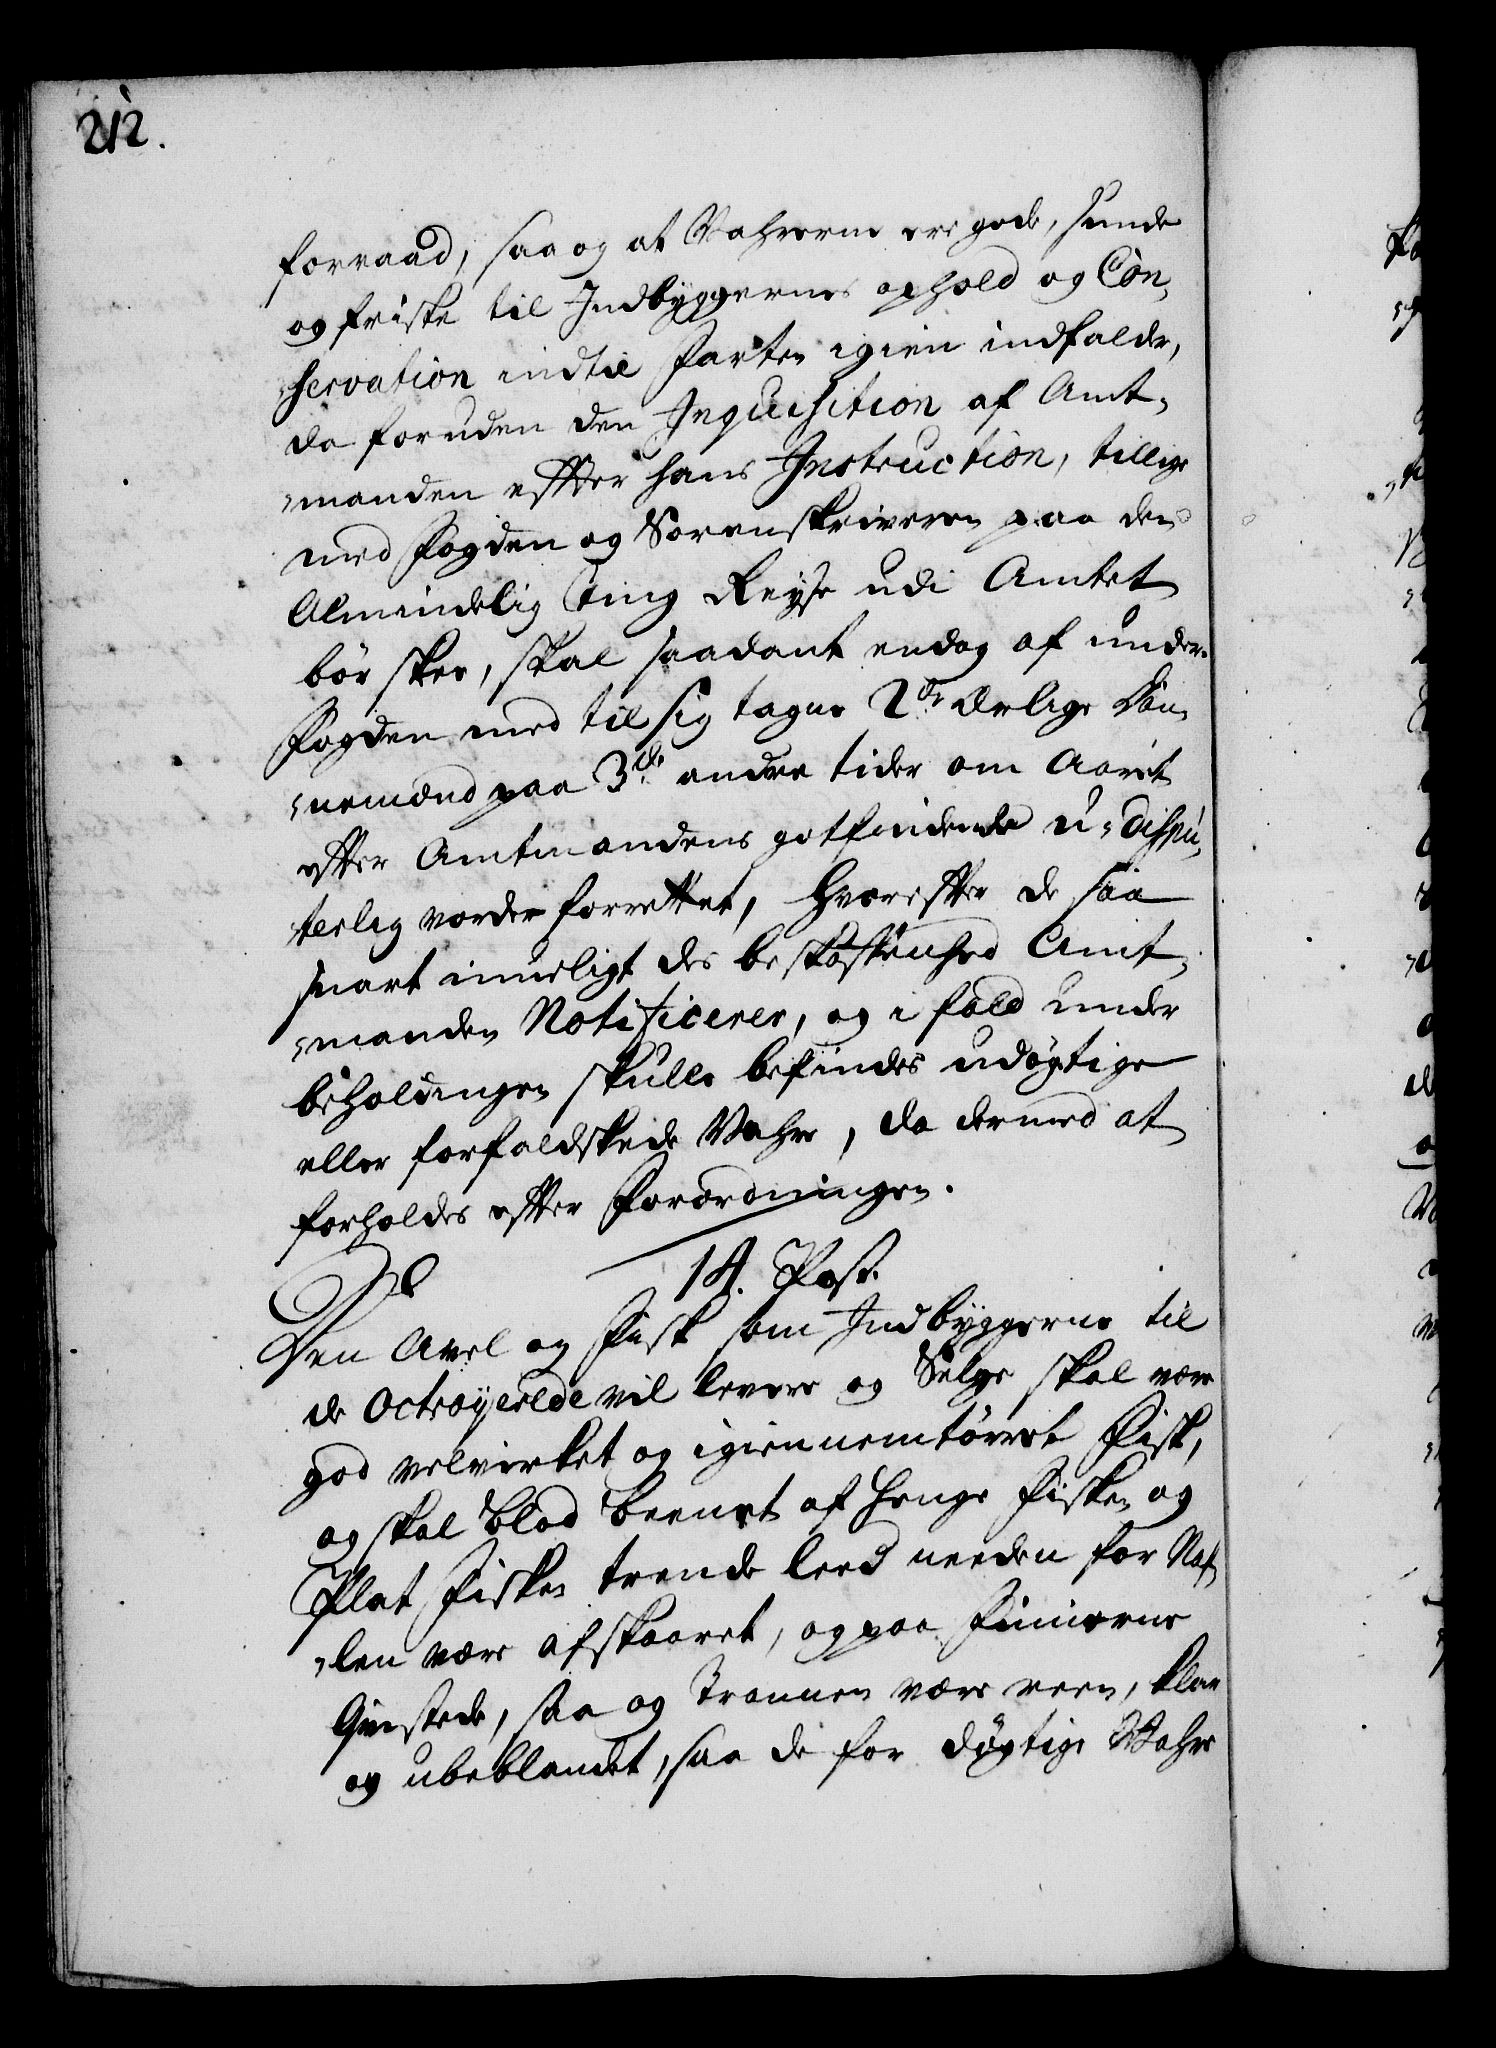 212.
forraad, saa og at Vahrerne ere gode, sunde
og friske til Indbyggernes ophold og Con¬
„servation indtil Farten igien indfalder,
da foruden den Inquisition af Amt¬
„manden efter hans Instruction, tillige
med Fogden og Sorenskriveren paa den
Almindelig Ting Reyse udi Amtet
bör skee, skal saadant endog af under¬
Fogden med til sig tagne 2de ærlige Dan¬
„nemænd paa 3de andre tider om Aaret
efter Amtmandens gotfindende u-dispu¬
terlig vorder forrettet, hvorefter de saa
snart mueligt des beskaffenhed Amt¬
„manden Notificerer, og i fald under
beholdingen skulle befindes udögtige
eller forfaldskede Vahre, da dermed at
forholdes efter Forordningen.
14. Post.
Den Avel og Fisk som Indbyggerne til
de Octroyerede vil levere og Selge skal være
god velvirket og igiennemtörret Fisk,
og skal blod beenet af henge Fisken og
Plat Fisken trende leed needen for Naf¬
„len være afskaaret, og paa Finnerne
Gvistede, saa og Trannen være reen, klar
og ubeblandet, saa de for dögtige Wahre